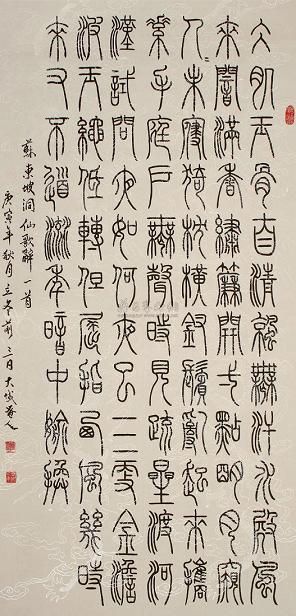 冰肌玉骨自清涼無汗水殿風
來闇滿香繡簾開一點明月窺
人〻未寢欹枕橫釵鬢亂起來攜
素手庭戶無聲時見疏星渡河
漢試問夜如何夜已三更金澹
波玉繩低轉但屈指西風幾時
來又不道流年暗中偷換
蘇東坡洞仙歌辭一首
庚寅年秋月立冬前三日大